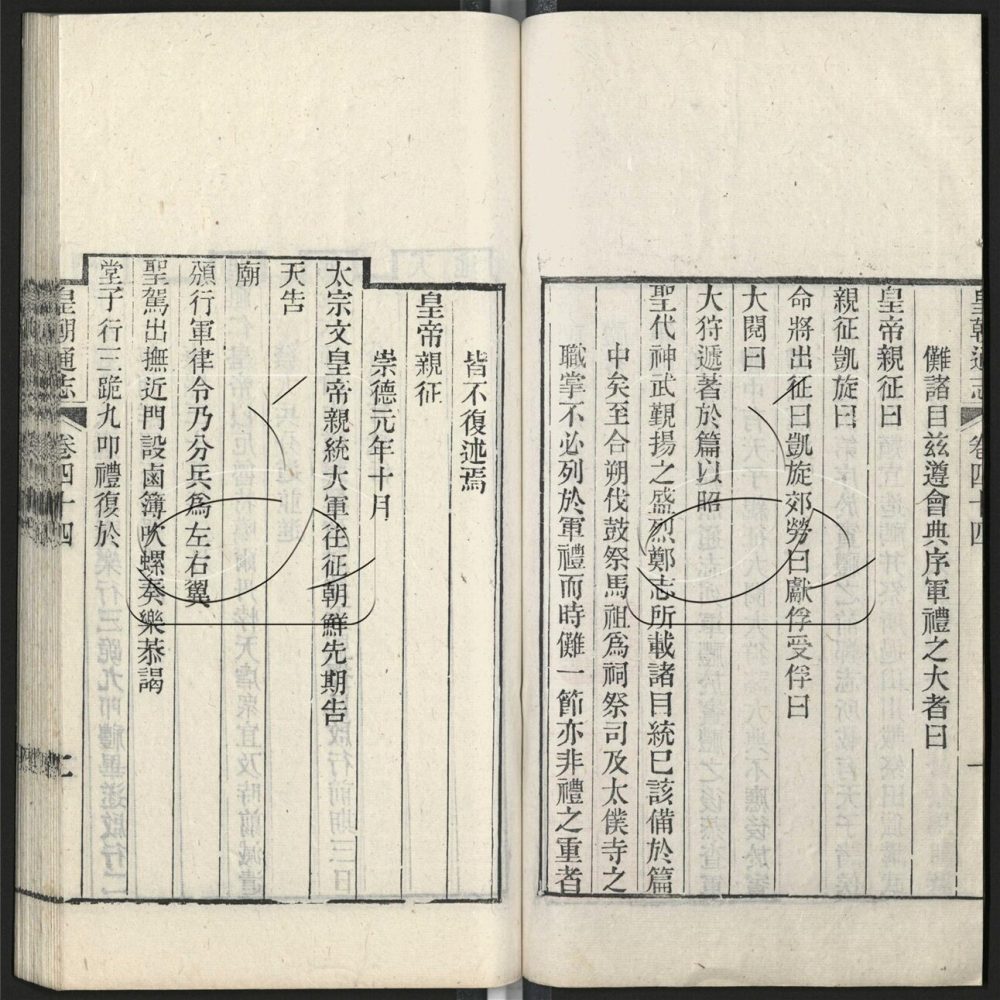 皇朝通志 卷四十四 一
儺諸目茲遵會典序軍禮之大者曰
皇帝親征曰
親征凱旋曰
命將出征曰凱旋郊勞曰獻俘受俘曰
大閱曰
大狩遞著於篇以昭
聖代神武覲揚之盛烈鄭志所載諸目統已該備於篇
中矣至合朔伐鼓祭馬祖為祠祭司及太僕寺之
職掌不必列於軍禮而時儺一節亦非禮之重者
皆不復述焉
皇帝親征
崇德元年十月
太宗文皇帝親統大軍往征朝鮮先期告
天告
廟
頒行軍律令乃分兵為左右翼
聖駕出撫近門設鹵簿吹螺奏樂恭謁
堂子行三跪九叩禮復於
皇朝通志 卷四十四